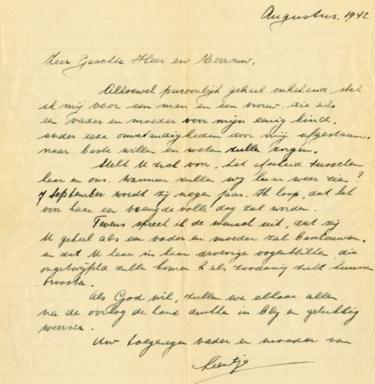 Augustus. 1942
Zeer Geachte Heer en Mevrouw.
Alhoewel persoonlijk geheel onbekend, stel
ik mij voor een man en een vrouw, die als
een vader en moeder voor mijn eenig kind,
onder deze omstandigheden door mij afgestaan,
naar beste willen en weten zullen zorgen.
Stelt U zich voor, het afscheid tusschen
haar en ons. Wanneer zullen wij haar weer zien?
7 September wordt zij negen jaar. Ik hoop, dat het
voor haar een vreugdevolle dag zal worden.
Tevens spreek ik de wensch uit, dat zij
U geheel als een vader en moeder zal beschouwen,
en dat U haar in haar droevige oogenblikken, die
ongetwijfeld zullen komen als zoodanig zult kunnen
troosten.
Als God wil, zullen we elkaar allen
na de oorlog de hand drukken in blij en gelukkig
weerzien.
Uw toegenegen vader en moeder van
Lientje